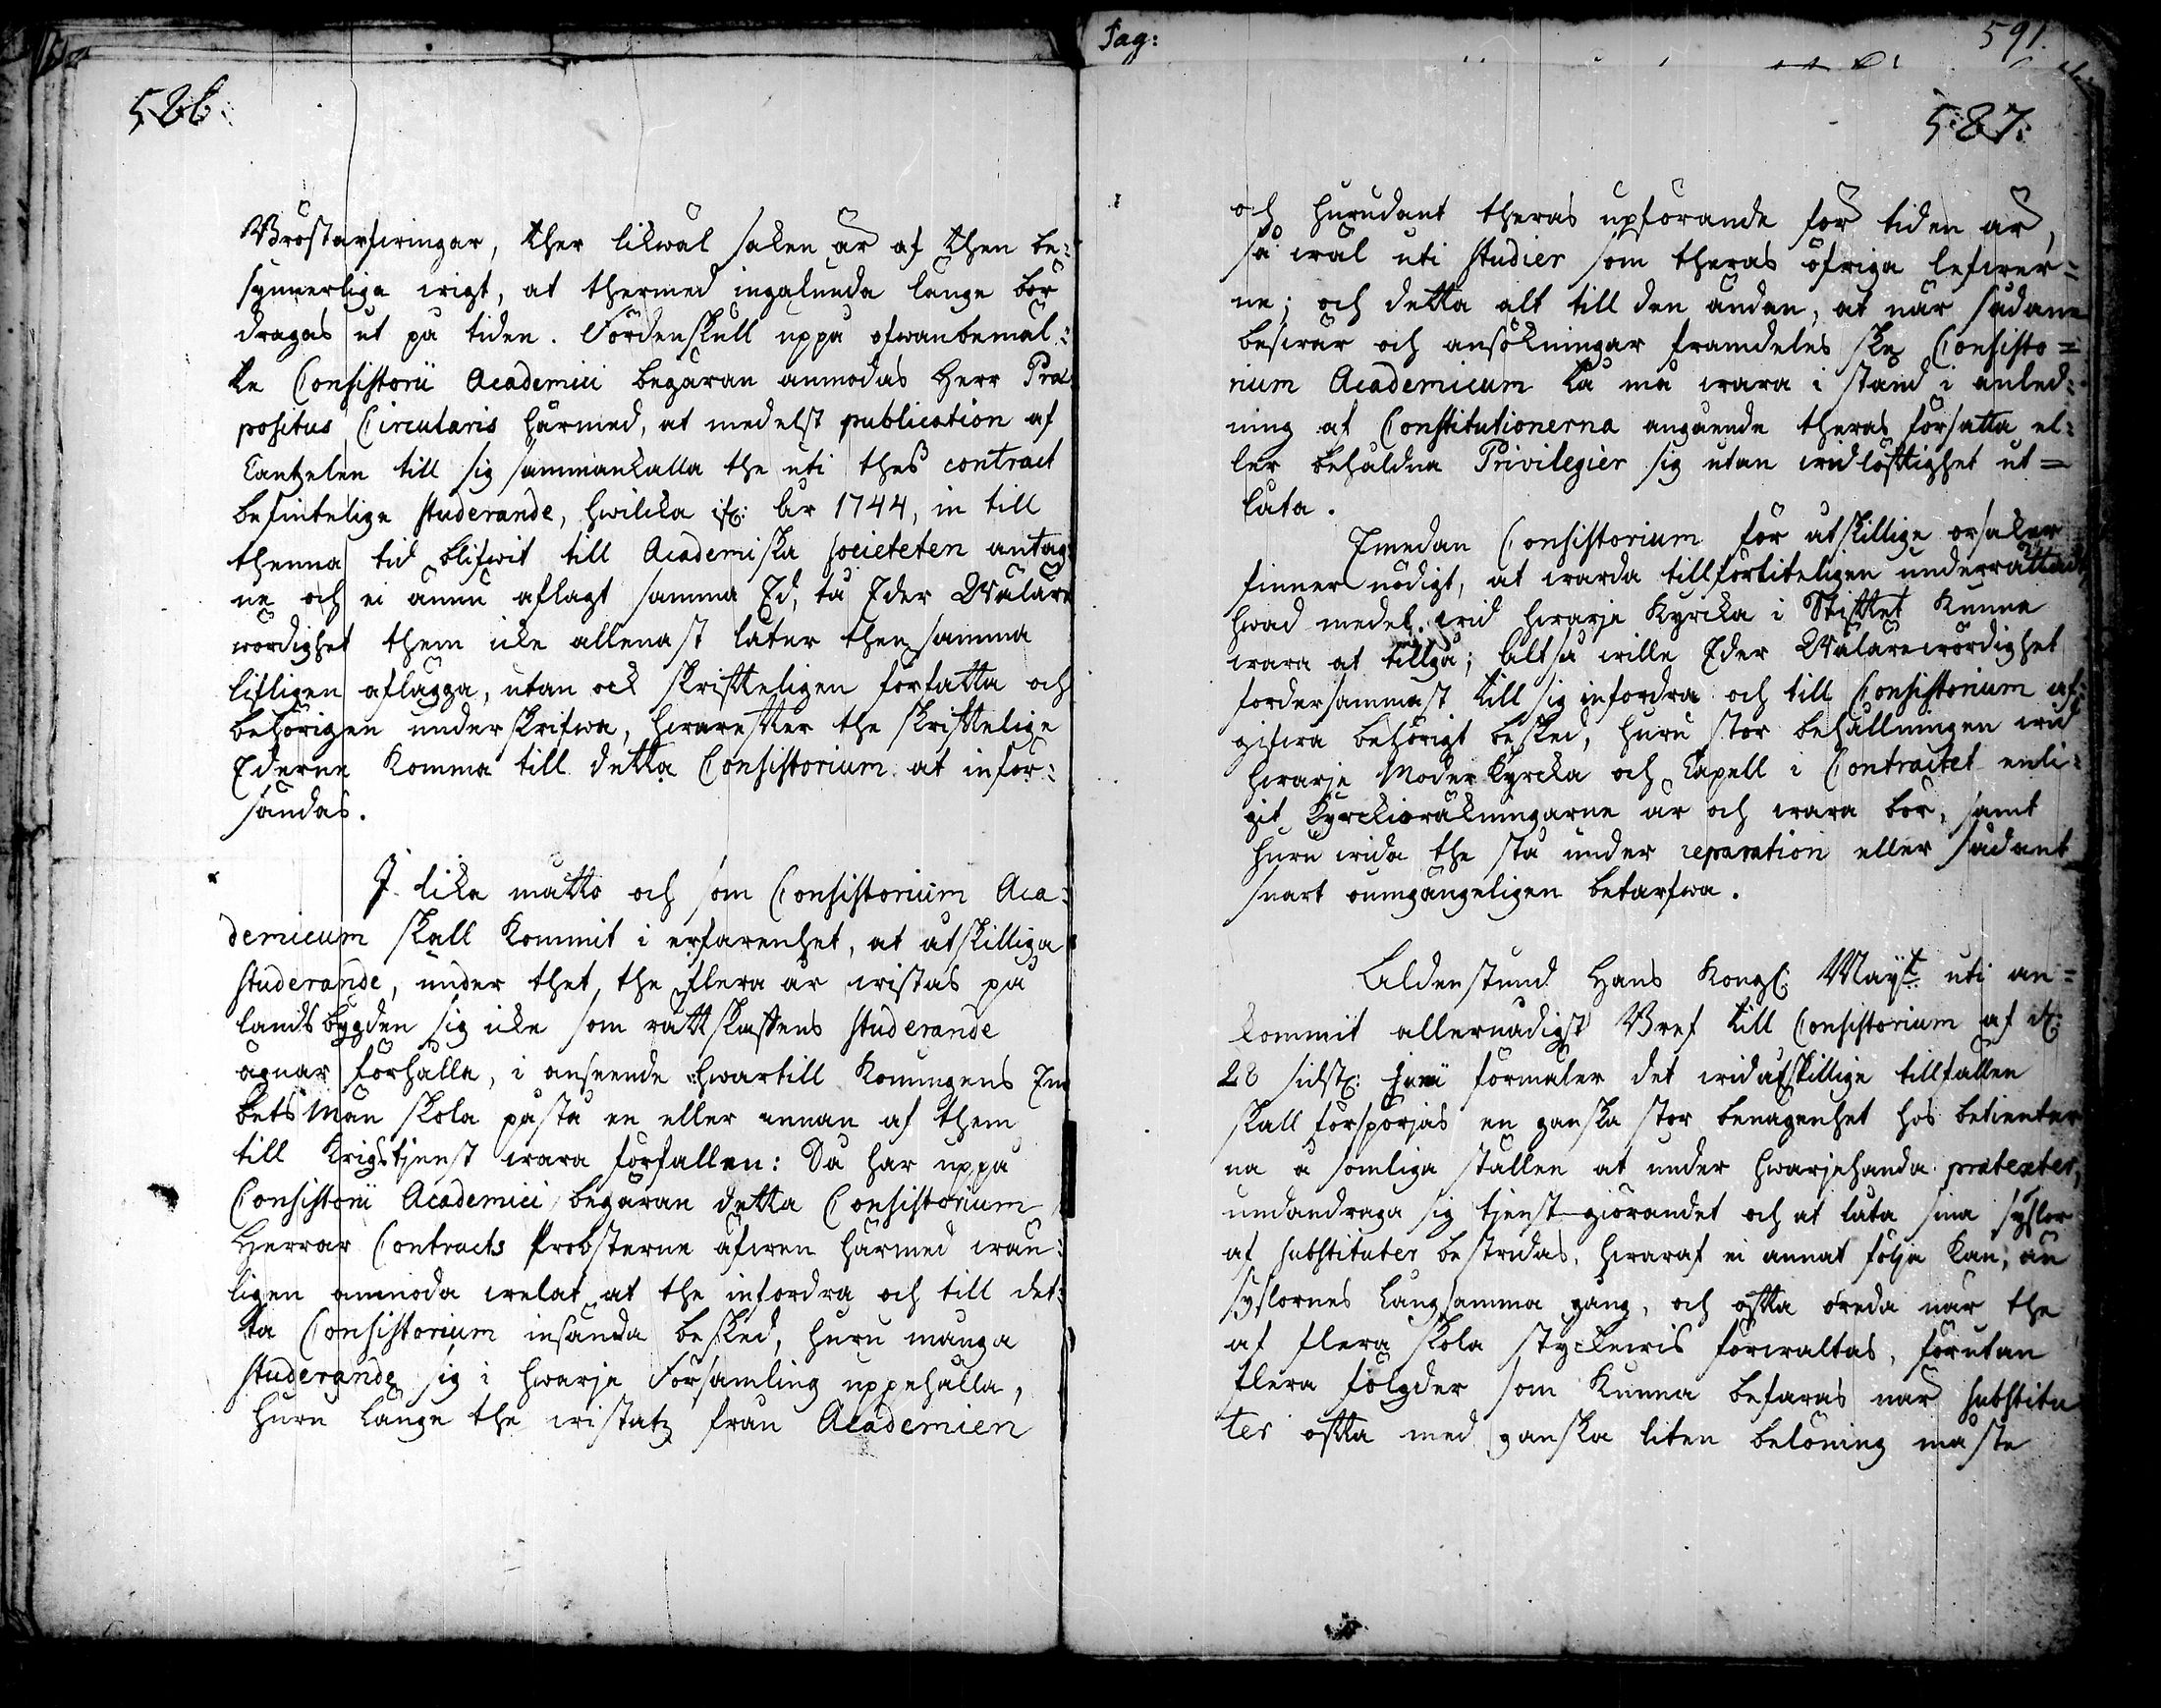 586.
Bröstarfwingar, ther likwäl saken är af then be-
synnerliga wigt, at thermed ingalunda länge bör
dragas ut på tiden. Fördenskull uppå ofwanbemäl-
te Consistorii Academici begäran anmodas Herr Præ
positus Circularis härmed, at medelst publication af
Cantzelen till sig sammankalla the uti thes contract
befintelige studerande, hwilcka ifr: år 1744, in till
thenna tid blifwit till Academiska societeten antag
ne och ei ännu aflagt samma Ed, tå Eder Wäläre
wördighet them icke allenast låter then samma
lifligen aflägga, utan ock skriftteligen författa och
behörigen underskrifwa, hwarefter the skrifttelige
Ederne komma till detta Consistorium at inför-
sändas.
I lika måtto och som Consistorium Aca-
demicum skall kommit i erfarenhet, at åtskilliga
studerande, under thet, the flera år wistas på
landsbygden sig icke som rättskaffens studerande
ägnar förhålla, i anseende hwartill Konungens Em
betsmän skola påstå en eller annan af them
till Krigstjenst wara förfallen: Då har uppå
Consistorii Academici begäran detta Consistorium
Herrar Contracts Probsterne äfwen härmed wän-
ligen anmoda welat at the infordra och till det-
ta Consistorium insända besked, huru många
studerande sig i hwarje Församling uppehålla,
huru länge the wistatz från Academien
Pag: 591.
587:
och hurudant theras upförande för tiden är,
så wäl uti studier som theras öfriga lefwer=
ne; och detta alt till den ändan, at när sådane
beswär och ansökningar framdeles ske Consisto=
rium Academicum tå må wara i stånd i anled-
ning af Constitutionerna angående theras försatta el-
ler behåldna Privilegier sig utan widlöfttighet ut=
låta.
Emedan Consistorium för åtskillige orsaker
finner nödigt, at warda tillförliteligen underrättadt,
hwad medel wid hwarje Kyrcka i Stifftet kunna
wara at tillgå; Altså wille Eder Wälärewördighet
fordersammast till sig infordra och till Consistorium af-
gifwa behörigt besked, huru stor behållningen wid
hwarje Moderkyrcka och Capell i Contractet enli-
git Kyrckioräkningarne är och wara bör, samt
huru wida the stå under reparation eller sådant
snart oumgängeligen betarfwa.
Aldenstund Hans Kongl: Mayt uti an=
kommit allernådigst Bref till Consistorium af d:
28 sidstl: Junii förmäler det wid åtskillige tillfällen
skall förspörjas en ganska stor benägenhet hos betienter
na å somliga ställen at under hwarjehanda prætexter,
undandraga sig tjenst-giörandet och at låta sina syslor
af substituter bestridas, hwaraf ei annat följa kan, än
syslornes långsamma gång, och offta oreda när the
af flera skola styckewis förwaltas, förutan
flera fölgder som kunna befaras när substitu
ter offta med ganska liten belöning måste